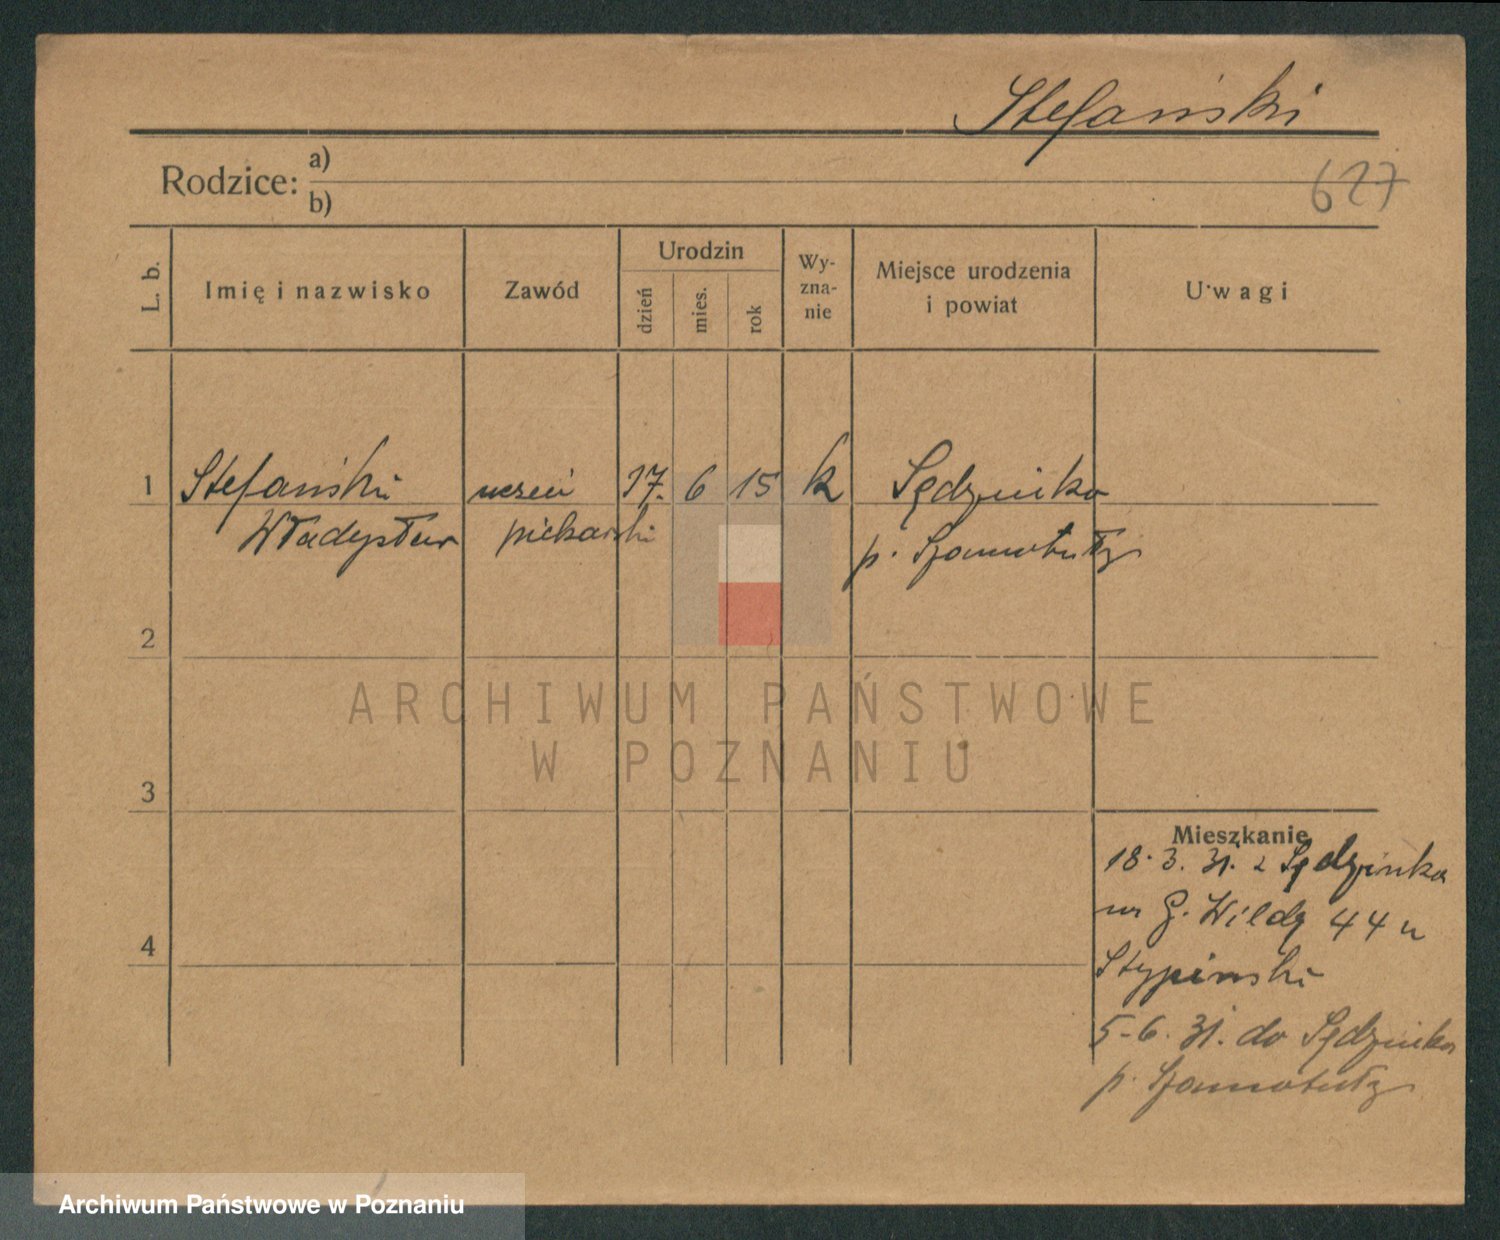 Stefański
627
Rodzice: a)
b)
L. b.
Imię i nazwisko
Zawód
Urodzin
dzień
mies.
rok
Wy-
zna-
nie
Miejsce urodzenia
i powiat
Uwagi
1 Stefański uczeń 17. 6 15 k Sędzinko
Władysław piekarski p. Szamotuły
2
3
4
Mieszkanie
18. 3. 31. z Sędzinka
na G. Wildę 44 u
Stypiński
5-6. 31. do Sędzinka
p. Szamotuły
ARCHIWUM PAŃSTWOWE
W POZNANIU
Archiwum Państwowe w Poznaniu